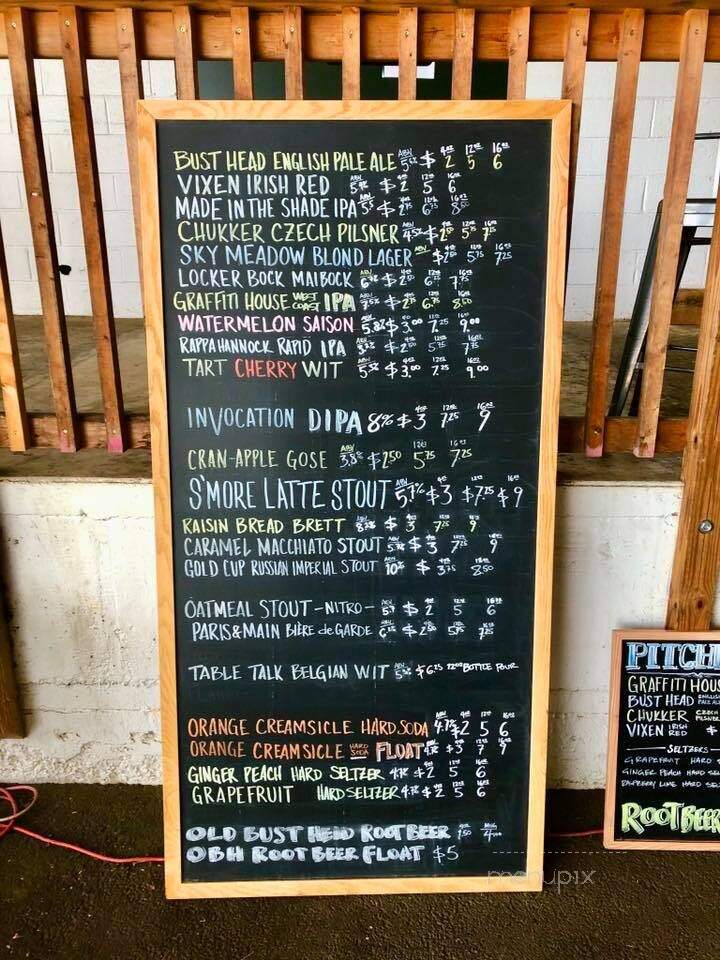 BUST HEAD ENGLISH PALE ALE ABV $ 4oz 2 12oz 5 16oz 6
VIXEN IRISH RED ABV $ 4oz 2 12oz 5 16oz 6
MADE IN THE SHADE IPA ABV 5.5 $ 12oz 6.75 16oz 8.50
CHUKKER CZECH PILSNER ABV 4.5% $ 2.50 12oz 5.75 16oz 7.25
SKY MEADOW BLOND LAGER ABV $ 2.50 5.75 7.25
LOCKER BOCK MAIBOCK ABV $ 12oz 16oz 7.75
GRAFFITI HOUSE WEST COAST IPA ABV $ 2.75 12oz 6.75 16oz 8.50
WATERMELON SAISON ABV 5.8% $ 3.00 12oz 7.25 16oz 9.00
RAPPAHANNOCK RAPID IPA ABV $ 2.50 5.75 7.75
TART CHERRY WIT ABV 5% $ 3.00 12oz 7.25 16oz 9.00
INVOCATION DIPA 8% $ 4oz 3 12oz 7.25 16oz 9
CRAN-APPLE GOSE ABV 3.8% $ 2.50 12oz 5.75 16oz 7.25
S'MORE LATTE STOUT ABV 5.1% $3 12oz $7.25 16oz $9
RAISIN BREAD BRETT $ 3 7.25 9
CARAMEL MACCHIATO STOUT ABV $ 3 7.25 9
GOLD CUP RUSSIAN IMPERIAL STOUT ABV 10% $ 3.75 8.50
OATMEAL STOUT -NITRO- ABV $ 4oz 2 12oz 5 16oz 6
PARIS & MAIN BIÈRE de GARDE ABV $ 2.50 5.75 7.25
TABLE TALK BELGIAN WIT ABV $ 6.25 BOTTLE POUR
ORANGE CREAMSICLE HARD SODA ABV 4.7% $2 12oz 5 16oz 6
ORANGE CREAMSICLE HARD SODA FLOAT $ 3 7 9
GINGER PEACH HARD SELTZER 4.7% $ 2 5 6
GRAPEFRUIT HARD SELTZER 4.7% $ 2 5 6
OLD BUST HEAD ROOT BEER MUG
OBH ROOT BEER FLOAT $5
PITCH
GRAFFITI HOUS
BUST HEAD ENGLISH PALE AL
CHUKKER CZECH PILSNE
VIXEN IRISH RED $
SELTZERS
GRAPEFRUIT HARD S
GINGER PEACH HARD SEL
HARD SE
ROOT BEER
menupix